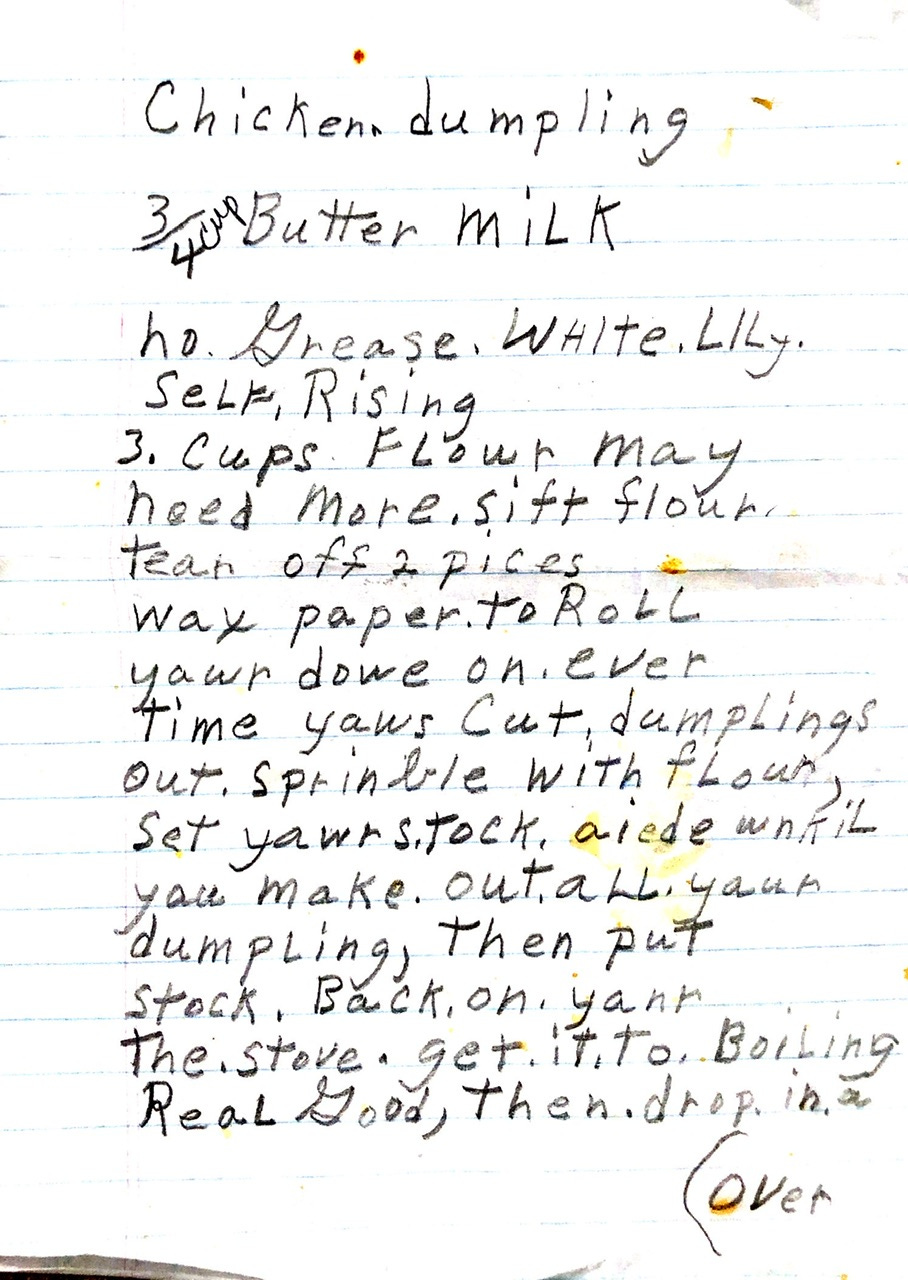 Chicken. dumpling
3/4 cup Butter MiLK
no. Grease. WHIte. LILy.
SeLF, Rising
3. Cups. FLour may
need More. sift flour.
tear off 2 pices
wax paper. to RoLL
yawr dowe on. ever
time yaws Cut, dumpLings
out. sprinkle with fLour,
Set yawr s.tock. aiede untiL
you make. out. aLL. yaur
dumpLing, Then put
stock. Back, on. yanr
The. stove. get. it. to. BoiLing
ReaL Good, then. drop. in. a
(over